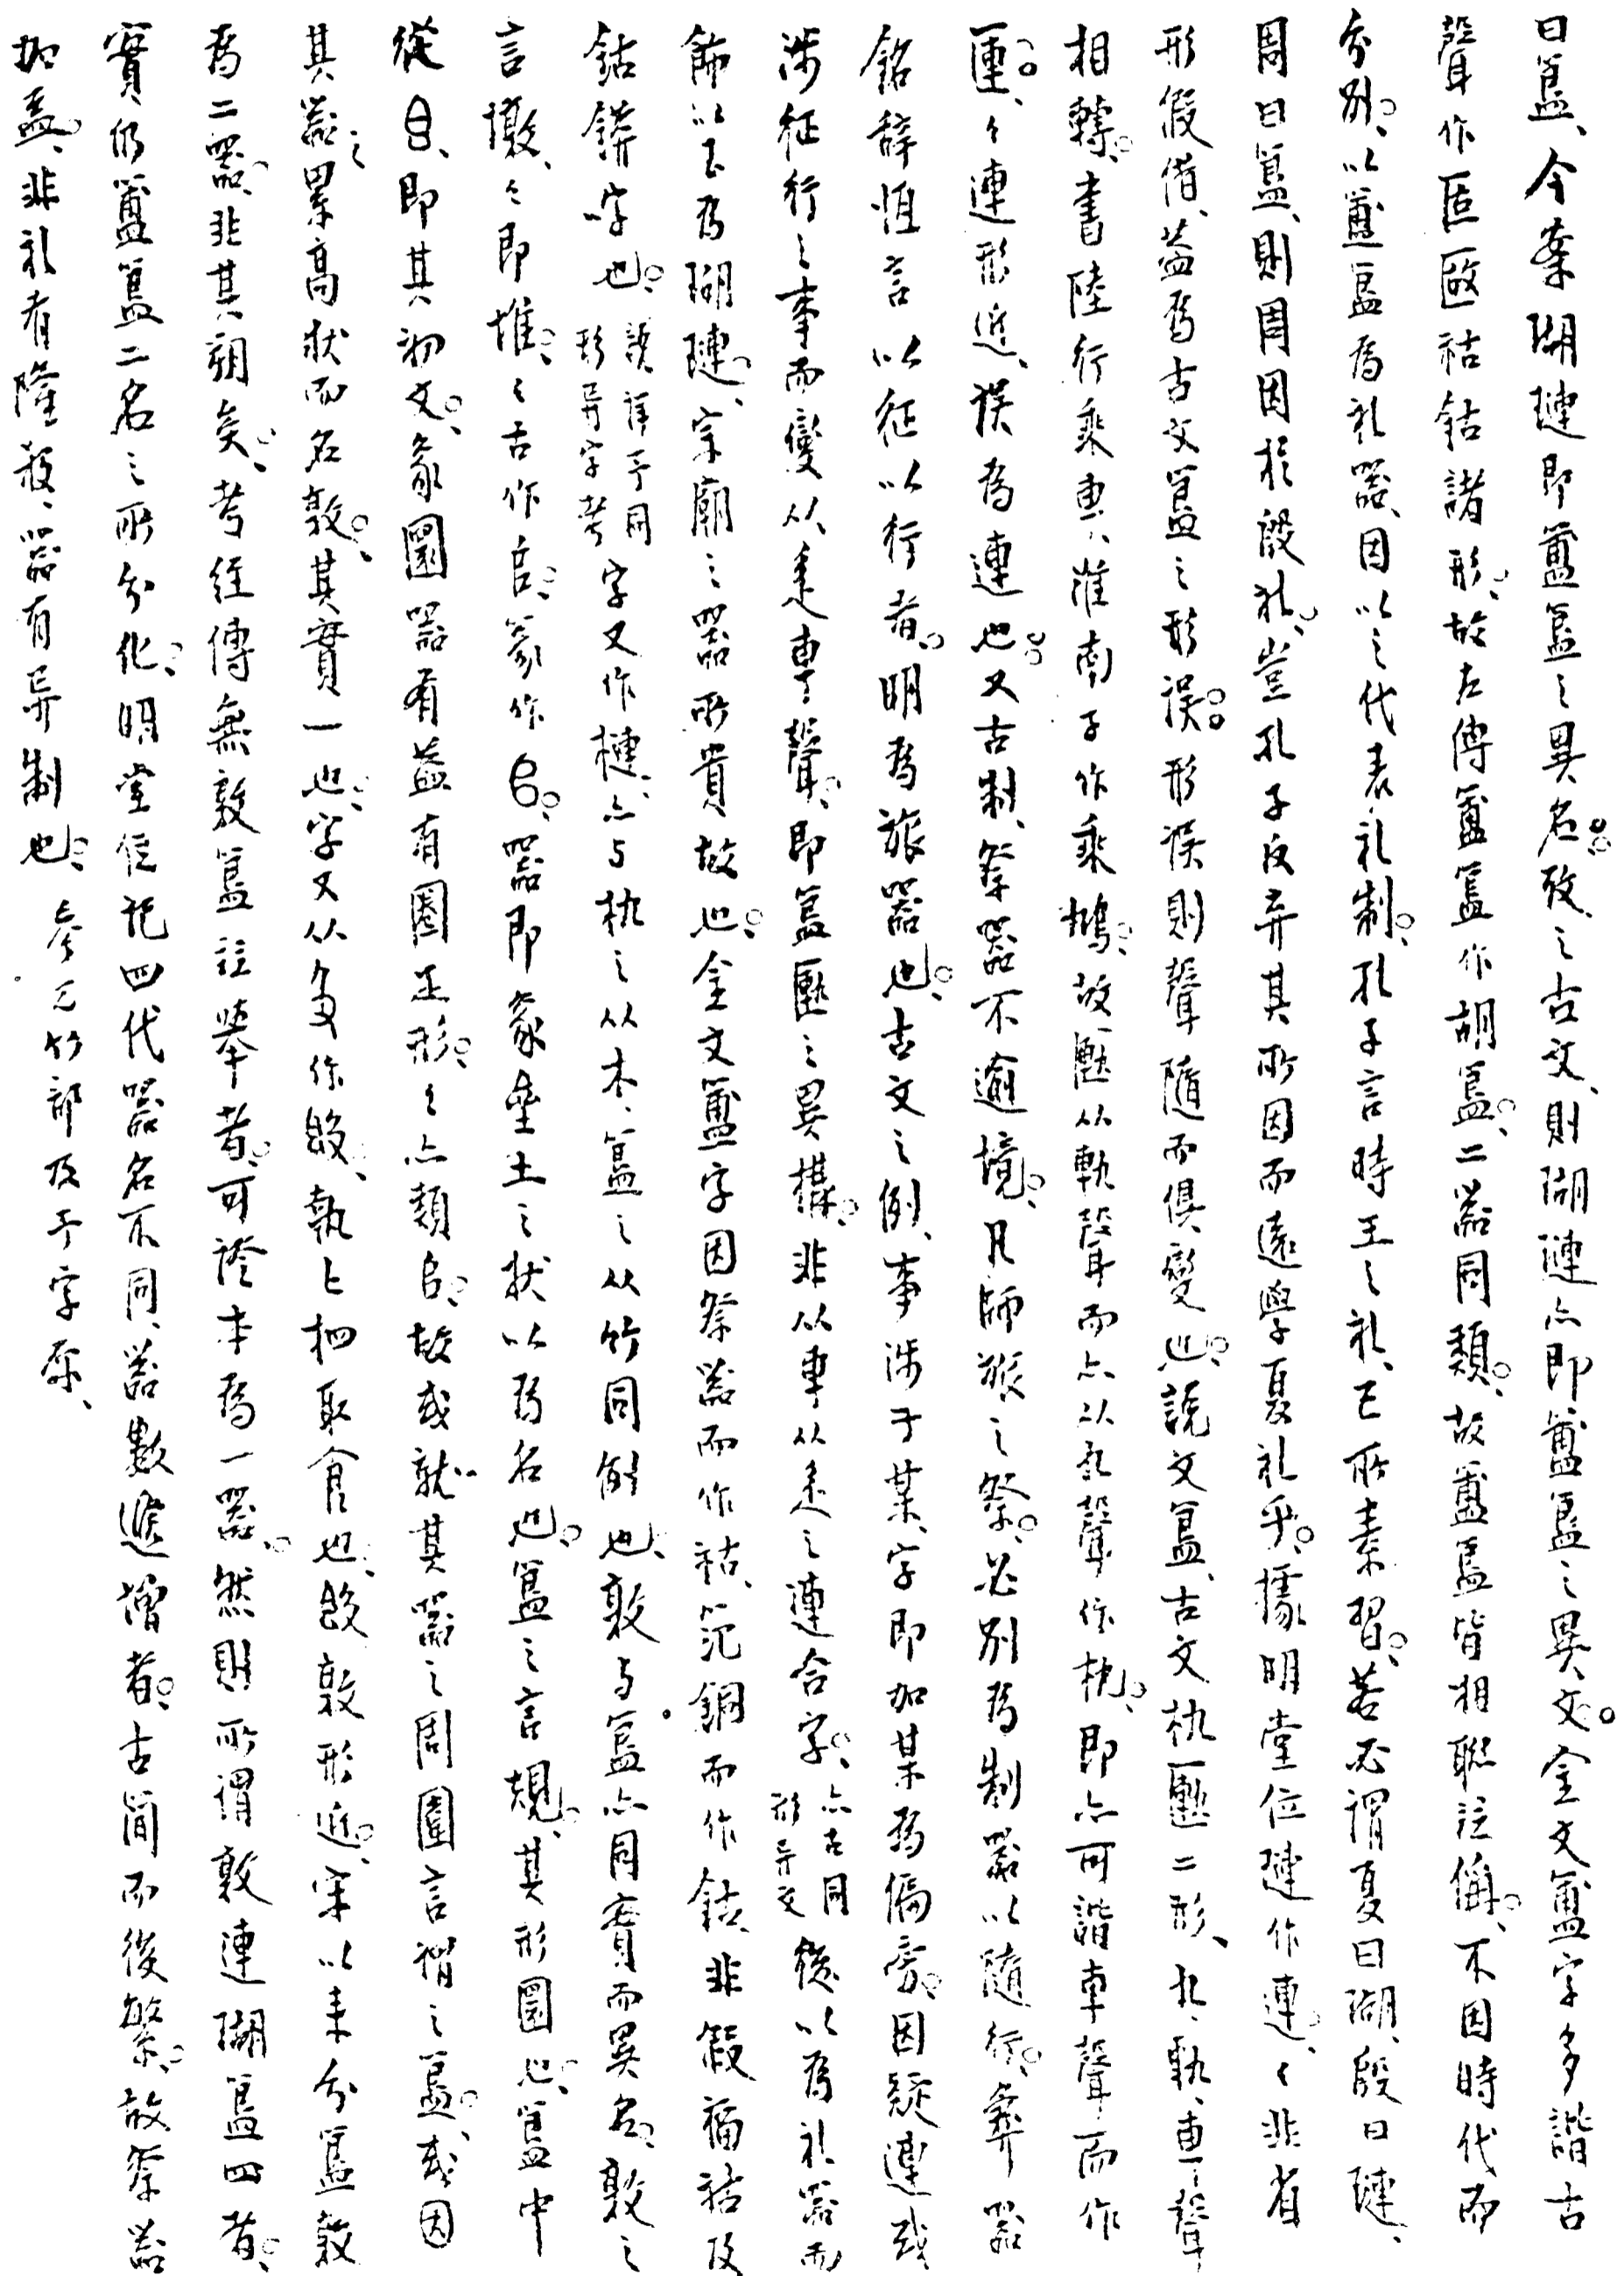 曰簋、今案瑚璉即簠簋之異名。攷之古文、則瑚璉亦即簠簋之異文。金文簠字多諧古
聲作匩祜鈷諸形。故左傳簠簋作胡簋。二器同類。故簠簋皆相聯註偁。不因時代而
分別。以簠簋為礼器、因以之代表礼制。孔子言時王之礼、已所素習。若必謂夏曰瑚、殷曰璉、
周曰簋、則周因於殷礼。豈孔子反弃其所因而遠學夏礼乎。據明堂位璉作連。々非省
形假借、葢為古文簋之形误。形误則聲隨而俱變也。說文簋、古文朹匭二形、九、軌、車聲
相轉。書陸行乘車、淮南子作乘鳩。故匭从軌聲而亦以九聲作朹。即亦可諧車聲而作
䡅、々連形近、误為連也。又古制、祭器不逾境。凡師旅之祭、必別為制器以隨行。彝器
銘辞恒言以征以行者。明為旅器也。古文之例、事涉于某、字即加某為偏旁。因疑連或
涉征行之事而變从辵車聲。即簋匭之異構。非从車从辵之連合字。亦古同形异文 後以為礼器而
飾以玉為瑚璉。宗廟之器所貴故也。金文簠字因祭器而作祜、范銅而作鈷、非假福祜及
鈷鏻字也。說詳予同形异字考 字又作槤、亦与朹之从木、簋之从竹同例也。敦与簋亦同實而異名。敦之
言墩、々即堆。々古作𠂤。篆作𠂤。器即象堆土之狀以為名也。簋之言規。其形圜也。簋中
從皀、即其初文。象圜器有葢有圈足形。々亦類𠂤。故或就其器之周圍言謂之簋。或因
其器之累高狀而名敦。其實一也。字又从殳作𣪘、執匕杷取食也。𣪘敦形近。宋以来分簋敦
為二器、非其朔矣。考經傳無敦簋註舉者。可證本為一器。然則所謂敦連瑚簋四者。
實仍簠簋二名之所分化。明堂位记四代器名不同、器數遞增者。古簡而後繁。故祭器
加葢、非礼有隆殺、器有异制也。 參見竹部及于字条、